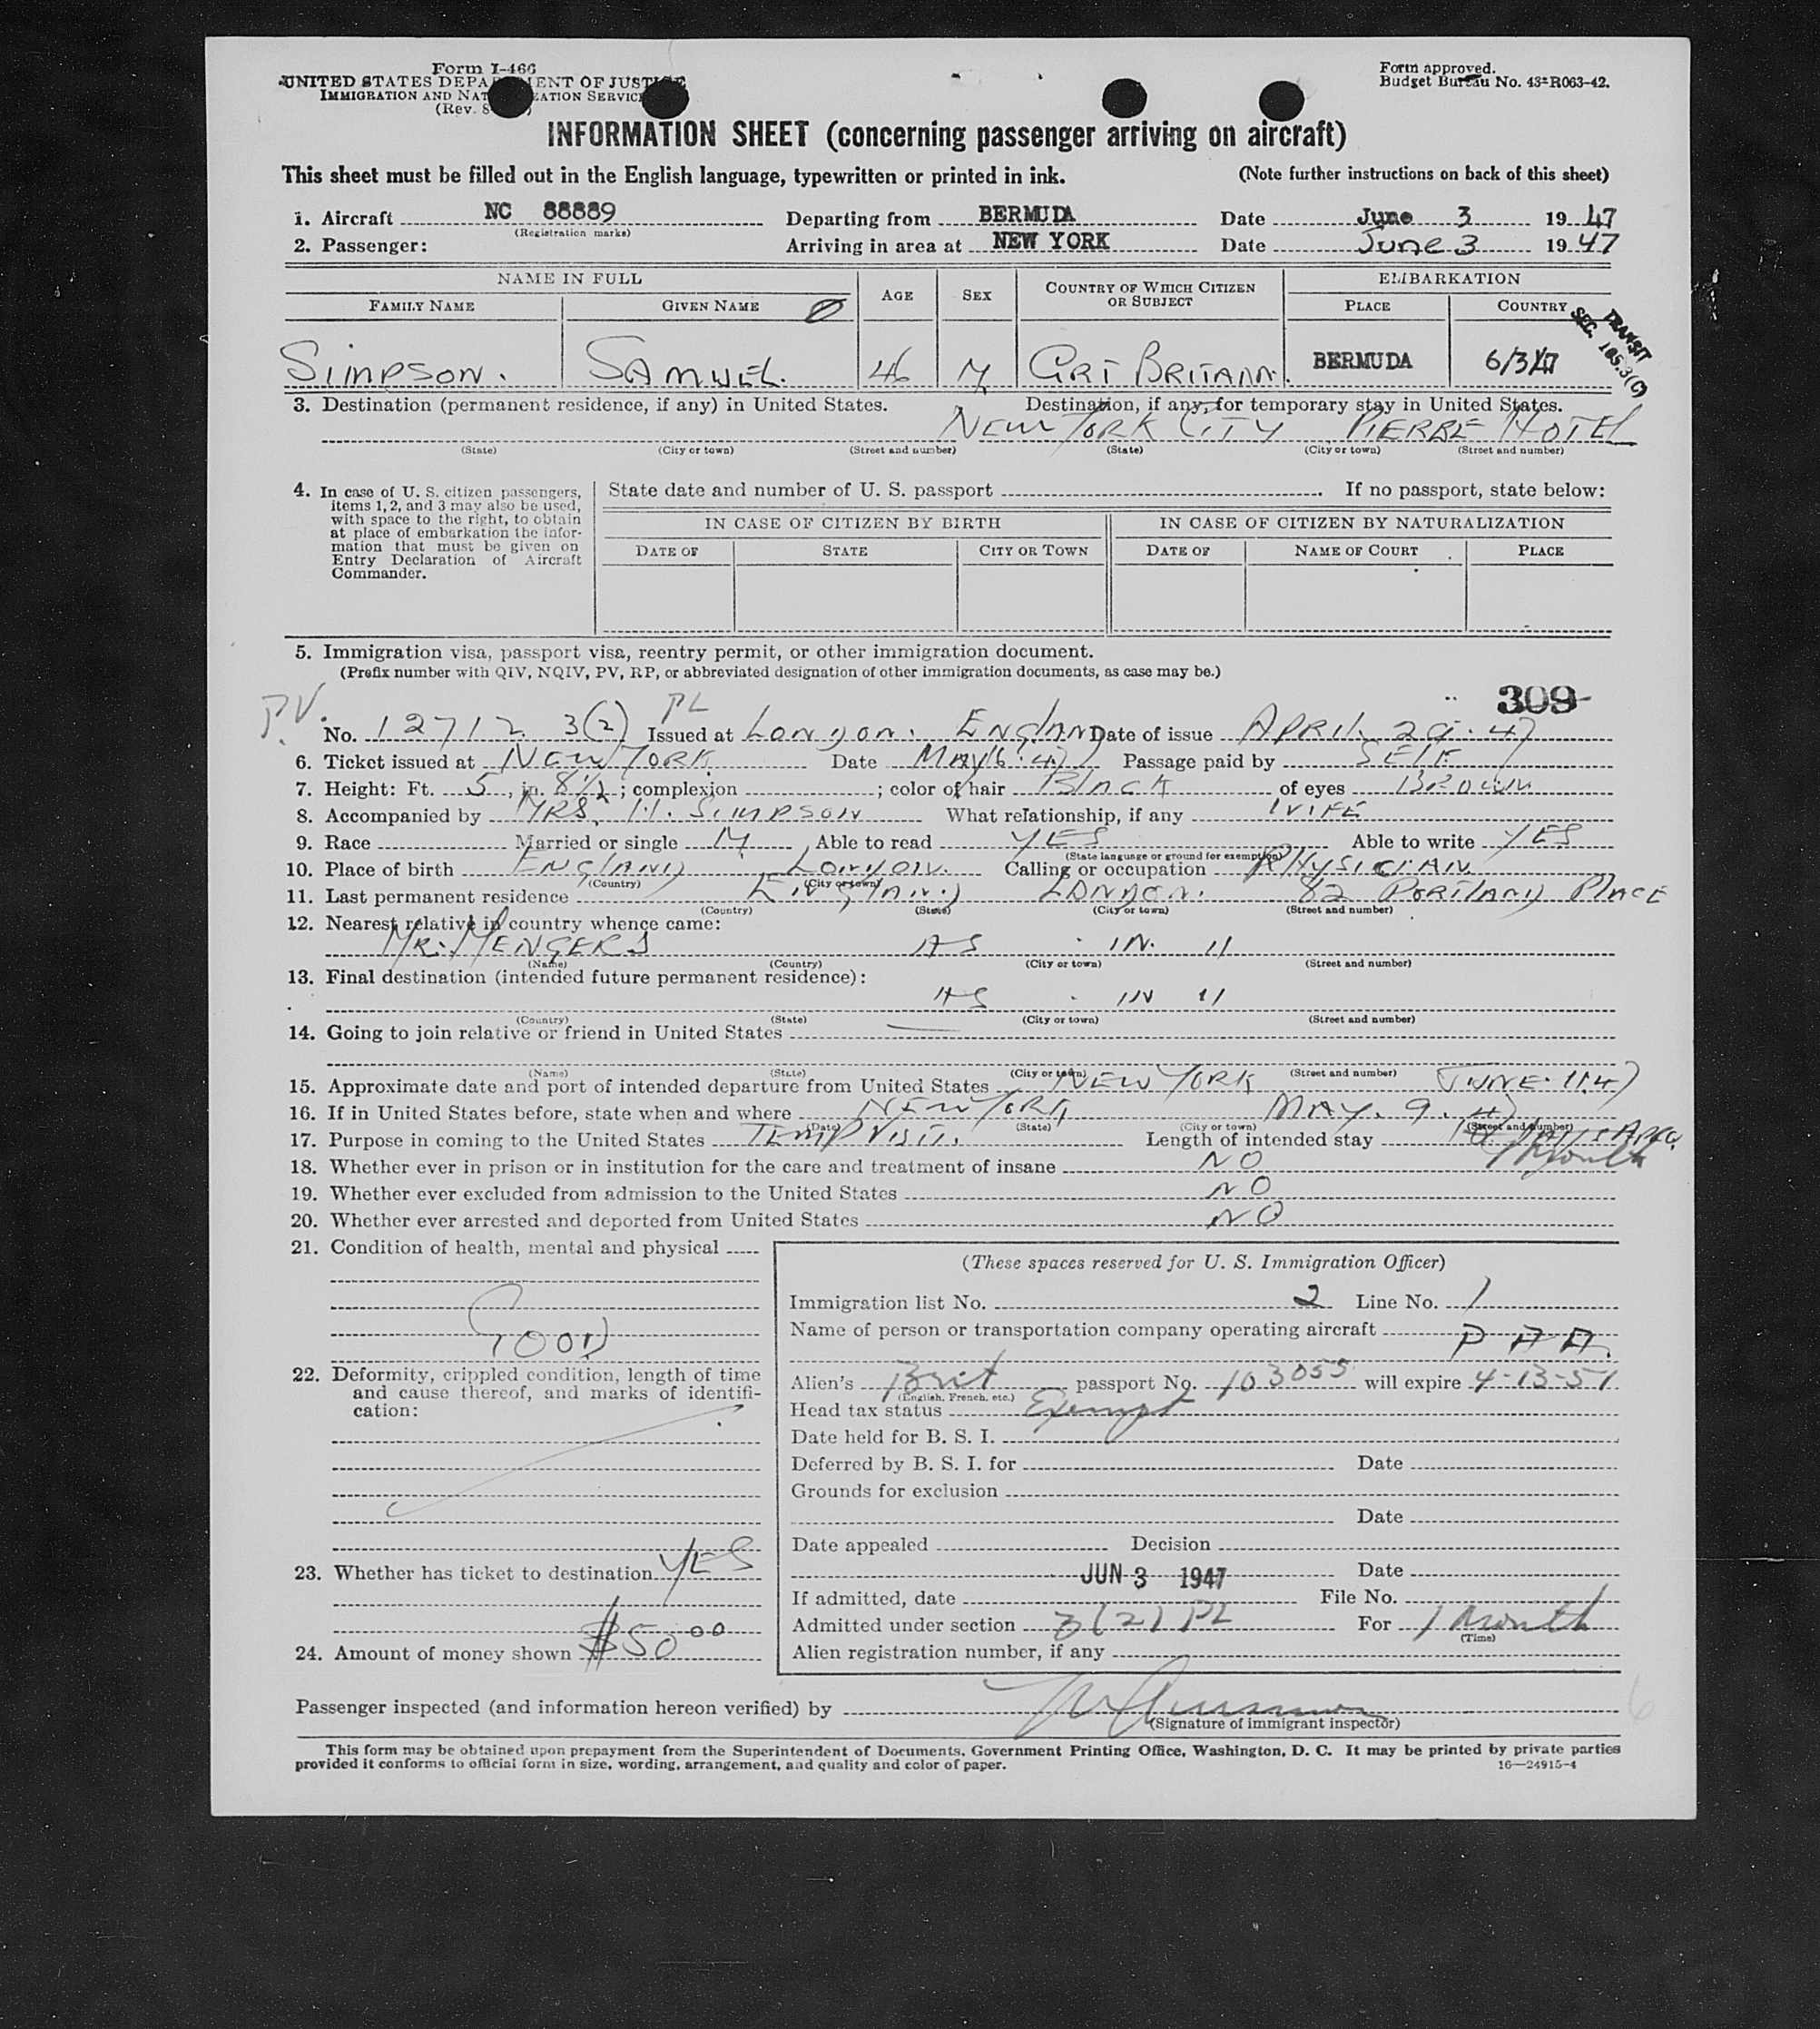 Form I-466
UNITED STATES DEPARTMENT OF JUSTICE
IMMIGRATION AND NATURALIZATION SERVICE
(Rev. 8
Form approved.
Budget Bureau No. 43-R063-42.
INFORMATION SHEET (concerning passenger arriving on aircraft)
This sheet must be filled out in the English language, typewritten or printed in ink. (Note further instructions on back of this sheet)
1. Aircraft NC 88889 Departing from BERMUDA Date June 3 1947
(Registration marks)
2. Passenger: Arriving in area at NEW YORK Date June 3 1947
NAME IN FULL AGE SEX COUNTRY OF WHICH CITIZEN OR SUBJECT EMBARKATION
FAMILY NAME GIVEN NAME PLACE COUNTRY
TRANSIT
SEC. 165.3(C)
SIMPSON. SAMUEL. 46 M GRT BRITAIN. BERMUDA 6/3/47
3. Destination (permanent residence, if any) in United States. Destination, if any, for temporary stay in United States.
NEW YORK CITY PIERRE HOTEL
(State) (City or town) (Street and number) (State) (City or town) (Street and number)
4. In case of U. S. citizen passengers, items 1, 2, and 3 may also be used, with space to the right, to obtain at place of embarkation the information that must be given on Entry Declaration of Aircraft Commander.
State date and number of U. S. passport . If no passport, state below:
IN CASE OF CITIZEN BY BIRTH IN CASE OF CITIZEN BY NATURALIZATION
DATE OF STATE CITY OR TOWN DATE OF NAME OF COURT PLACE
5. Immigration visa, passport visa, reentry permit, or other immigration document.
(Prefix number with QIV, NQIV, PV, RP, or abbreviated designation of other immigration documents, as case may be.)
309
P.V. PL
No. 12712 3(2) Issued at LONDON. ENGLAND Date of issue APRIL 29. 47
6. Ticket issued at NEW YORK Date MAY 16. 47 Passage paid by SELF
7. Height: Ft. 5, in. 8½; complexion ; color of hair BLACK of eyes BROWN
8. Accompanied by MRS. M. SIMPSON What relationship, if any WIFE
9. Race Married or single M Able to read YES Able to write YES
(State language or ground for exemption)
10. Place of birth ENGLAND LONDON. Calling or occupation PHYSICIAN
(Country) (City or town)
11. Last permanent residence ENGLAND LONDON. 82 PORTLAND PLACE
(Country) (State) (City or town) (Street and number)
12. Nearest relative in country whence came:
MR. MENGERS AS IN. 11
(Name) (Country) (City or town) (Street and number)
13. Final destination (intended future permanent residence):
AS IN 11
(Country) (State) (City or town) (Street and number)
14. Going to join relative or friend in United States
(Name) (State) (City or town) (Street and number)
15. Approximate date and port of intended departure from United States NEW YORK JUNE. 11.47
16. If in United States before, state when and where NEW YORK MAY. 9. 47
(Date) (State) (City or town) (Street and number)
17. Purpose in coming to the United States TEMP VISIT. Length of intended stay 1 Month
18. Whether ever in prison or in institution for the care and treatment of insane NO
19. Whether ever excluded from admission to the United States NO
20. Whether ever arrested and deported from United States NO
21. Condition of health, mental and physical
GOOD
22. Deformity, crippled condition, length of time and cause thereof, and marks of identification:
23. Whether has ticket to destination YES
24. Amount of money shown $50 00
(These spaces reserved for U. S. Immigration Officer)
Immigration list No. 2 Line No. 1
Name of person or transportation company operating aircraft P A A.
Alien's Brit passport No. 103055 will expire 4-13-51
(English, French, etc.)
Head tax status Exempt
Date held for B. S. I.
Deferred by B. S. I. for Date
Grounds for exclusion
Date
Date appealed Decision
Date
JUN 3 1947
If admitted, date File No.
Admitted under section 3(2) PL For 1 Month
(Time)
Alien registration number, if any
Passenger inspected (and information hereon verified) by
(Signature of immigrant inspector)
This form may be obtained upon prepayment from the Superintendent of Documents, Government Printing Office, Washington, D. C. It may be printed by private parties
provided it conforms to official form in size, wording, arrangement, and quality and color of paper. 16—24915-4